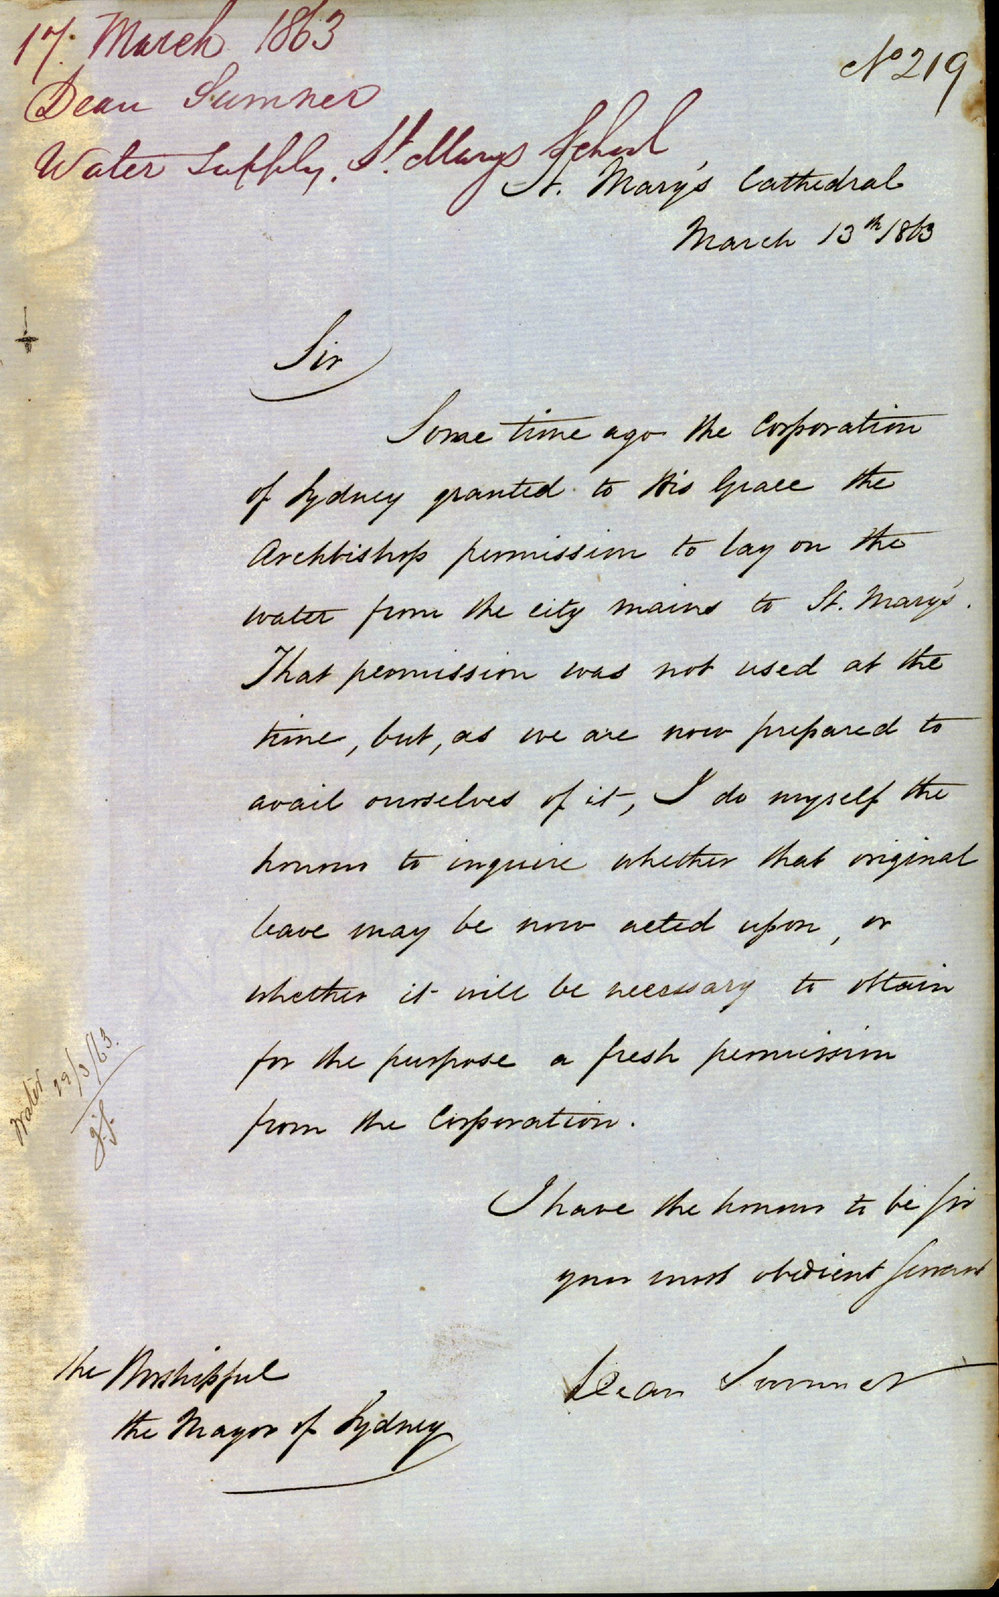 17. March 1863
Dean Sumner
Water Supply, St Marys School
No 219
St. Mary's Cathedral
March 13th 1863
Sir
Some time ago the Corporation
of Sydney granted to His Grace the
Archbishop permission to lay on the
water from the city mains to St. Mary's.
That permission was not used at the
time, but, as we are now prepared to
avail ourselves of it, I do myself the
honour to inquire whether that original
leave may be now acted upon, or
whether it will be necessary to obtain
for the purpose a fresh permission
from the Corporation.
I have the honour to be Sir
your most obedient servant
Dean Sumner
The Worshipful
the Mayor of Sydney
Water